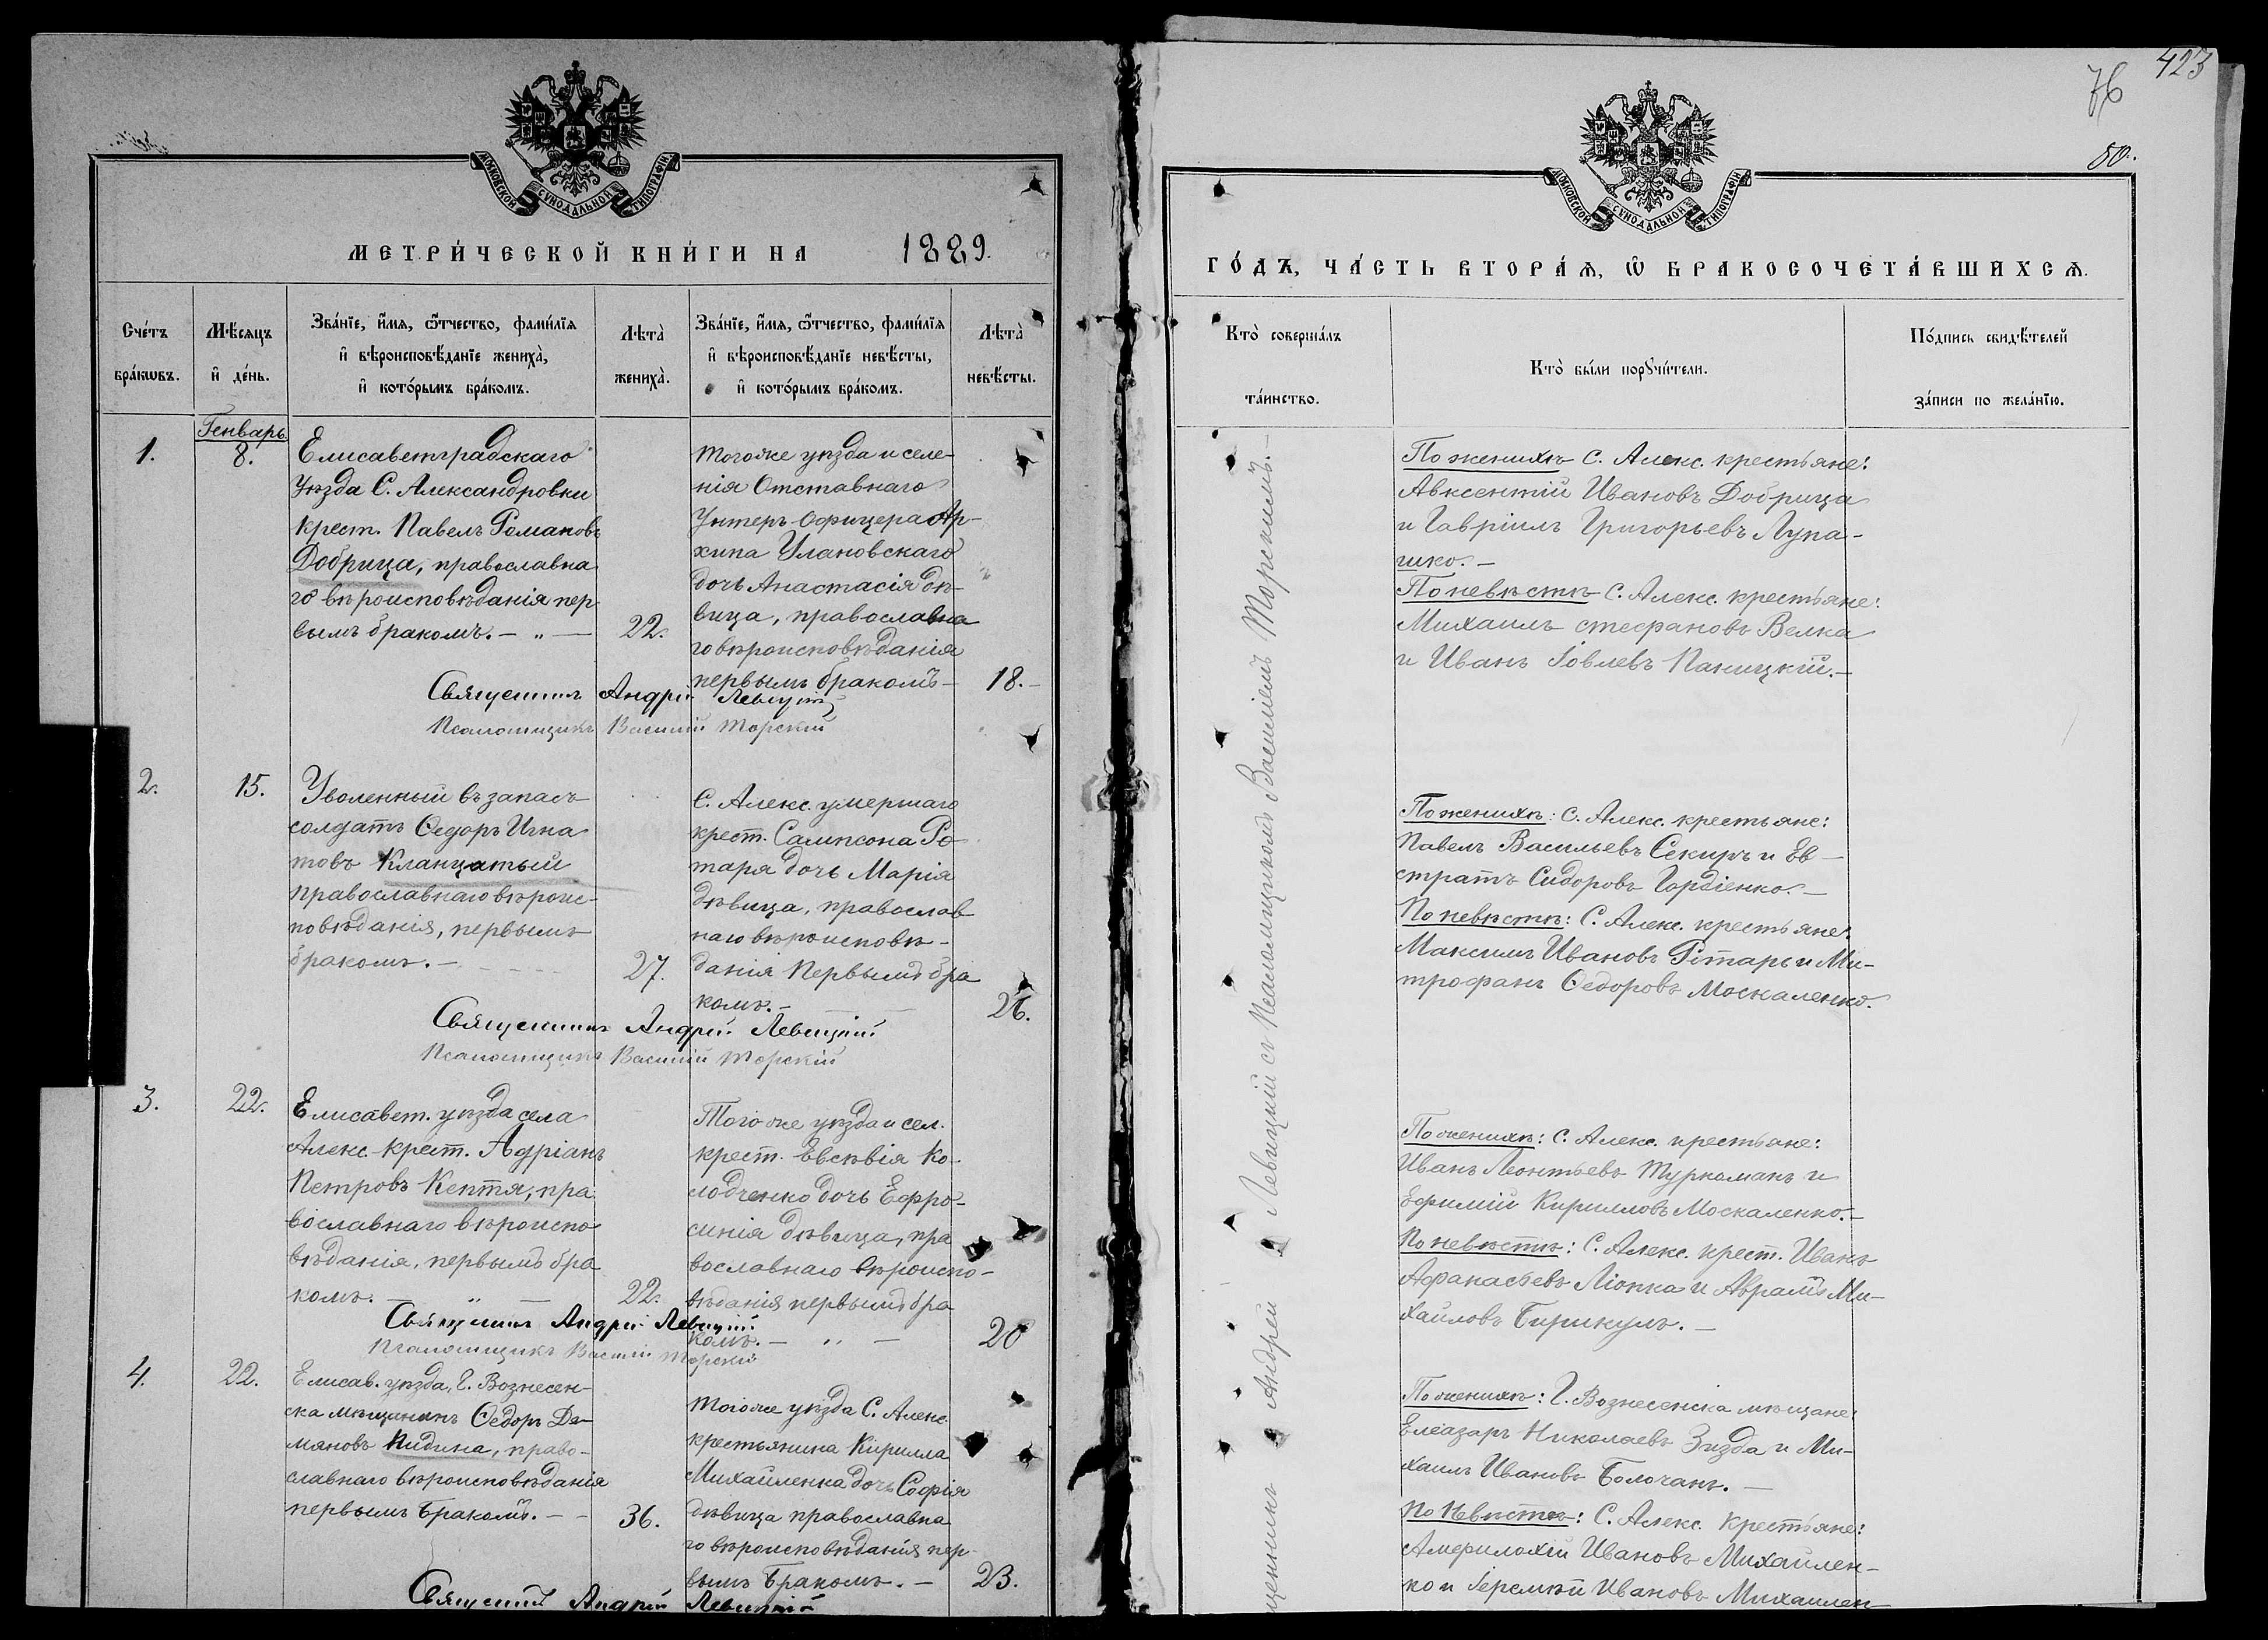 423
76
50.
МОСКОВСКОЙ СѴНОДАЛЬНОЙ ТИПОГРАФІИ
МЕТРИ́ЧЕСКОЙ КНИ́ГИ НА 1889.
Сче́тъ бра́кѡвъ.
Мѣ́сяцъ и҆ де́нь.
Зва́нїе, и҆́мѧ, ѻ҆́тчество, фами́лїѧ и҆ вѣроисповѣ́данїе жениха̀, и҆ кото́рымъ бра́комъ.
Лѣ́та̀ жениха̀.
Зва́нїе, и҆́мѧ, ѻ҆́тчество, фами́лїѧ и҆ вѣроисповѣ́данїе невѣ́сты, и҆ кото́рымъ бра́комъ.
Лѣ́та̀ невѣ́сты.
Генварь
1.
8.
Елисаветградскаго
уѣзда С. Александровки
крест. Павелъ Романовъ
Добрица, православна
го вѣроисповѣданія пер
вымъ бракомъ. — „ —
22.
Тогоже уѣзда и селе-
нія Отставнаго
Унтеръ-Офицера Ар-
хипа Улановскаго
дочь Анастасія дѣ-
вица, православна
го вѣроисповѣданія
первымъ бракомъ —
18. —
Священникъ Андрей Левицкій
Псаломщикъ Василій Торскій
2.
15.
Уволенный въ запасъ
солдатъ Ѳедоръ Игна
товъ Кланцатый
православнаго вѣроис-
повѣданія, первымъ
бракомъ. —
27.
С. Алекс. умершаго
крест. Сампсона Ро-
таря дочь Марія
дѣвица, православ
наго вѣроисповѣ-
данія первымъ бра
комъ. —
26.
Священникъ Андрей Левицкій
Псаломщикъ Василій Торскій
3.
22.
Елисавет. уѣзда села
Алекс. крест. Адріанъ
Петровъ Кептя, пра
вославнаго вѣроиспо
вѣданія, первымъ бра
комъ. — „ —
22.
Тогоже уѣзда и сел.
крест. Евсевія Ко-
лодченко дочь Ефро-
синія дѣвица, пра
вославнаго вѣроиспо-
вѣданія первымъ бра
комъ. — „ —
20
Священникъ Андрей Левицкій
Псаломщикъ Василій Торскій
4.
22.
Елисав. уѣзда, Г. Вознесен-
ска мѣщанинъ Ѳедоръ Да-
міановъ Кидина, право-
славнаго вѣроисповѣданія
первымъ бракомъ. —
36.
Тогоже уѣзда С. Алекс
крестьянина Кирилла
Михайленка дочь Софія
дѣвица православна
го вѣроисповѣданія пер-
вымъ бракомъ. —
23.
Священникъ Андрей Левицкій
МОСКОВСКОЙ СѴНОДАЛЬНОЙ ТИПОГРАФІИ
ГО́ДЪ, ЧА́СТЬ ВТОРА́Ѧ, Ѡ҆ БРАКОСОЧЕТА́ВШИХСѦ.
Кто̀ соверша́лъ та́инство.
Кто̀ бы́ли порꙋчи́тели.
По́дпись свидѣ́телей за́писи по жела́нїю.
Андрей Левицкій съ Псаломщикомъ Василіемъ Торскимъ. —
По женихѣ С. Алекс. крестьяне:
Авксентій Ивановъ Добрица
и Гавріилъ Григорьевъ Лупа-
шко. —
По невѣстѣ С. Алекс. крестьяне:
Михаилъ Стефановъ Велка
и Иванъ Іовлевъ Паницкій. —
По женихѣ: С. Алекс. крестьяне:
Павелъ Васильевъ Секиръ и Ев-
стратъ Сидоровъ Гордіенко. —
По невѣстѣ: С. Алекс. крестьяне:
Максимъ Ивановъ Ротарь и Ми-
трофанъ Ѳедоровъ Москаленко.
По женихѣ: С. Алекс. крестьяне:
Иванъ Леонтьевъ Туркоманъ и
Ефимій Кирилловъ Москаленко. —
По невѣстѣ: С. Алекс. крест. Иванъ
Афанасьевъ Ліопка и Аврамъ Ми-
хайловъ Бирикулъ. —
По женихѣ: Г. Вознесенска мѣщане:
Елеазаръ Николаевъ Зизда и Ми-
хаилъ Ивановъ Болочанъ. —
По невѣстѣ: С. Алекс. крестьяне:
Амфилохій Ивановъ Михайлен-
ко и Іеремѣй Ивановъ Михайлен